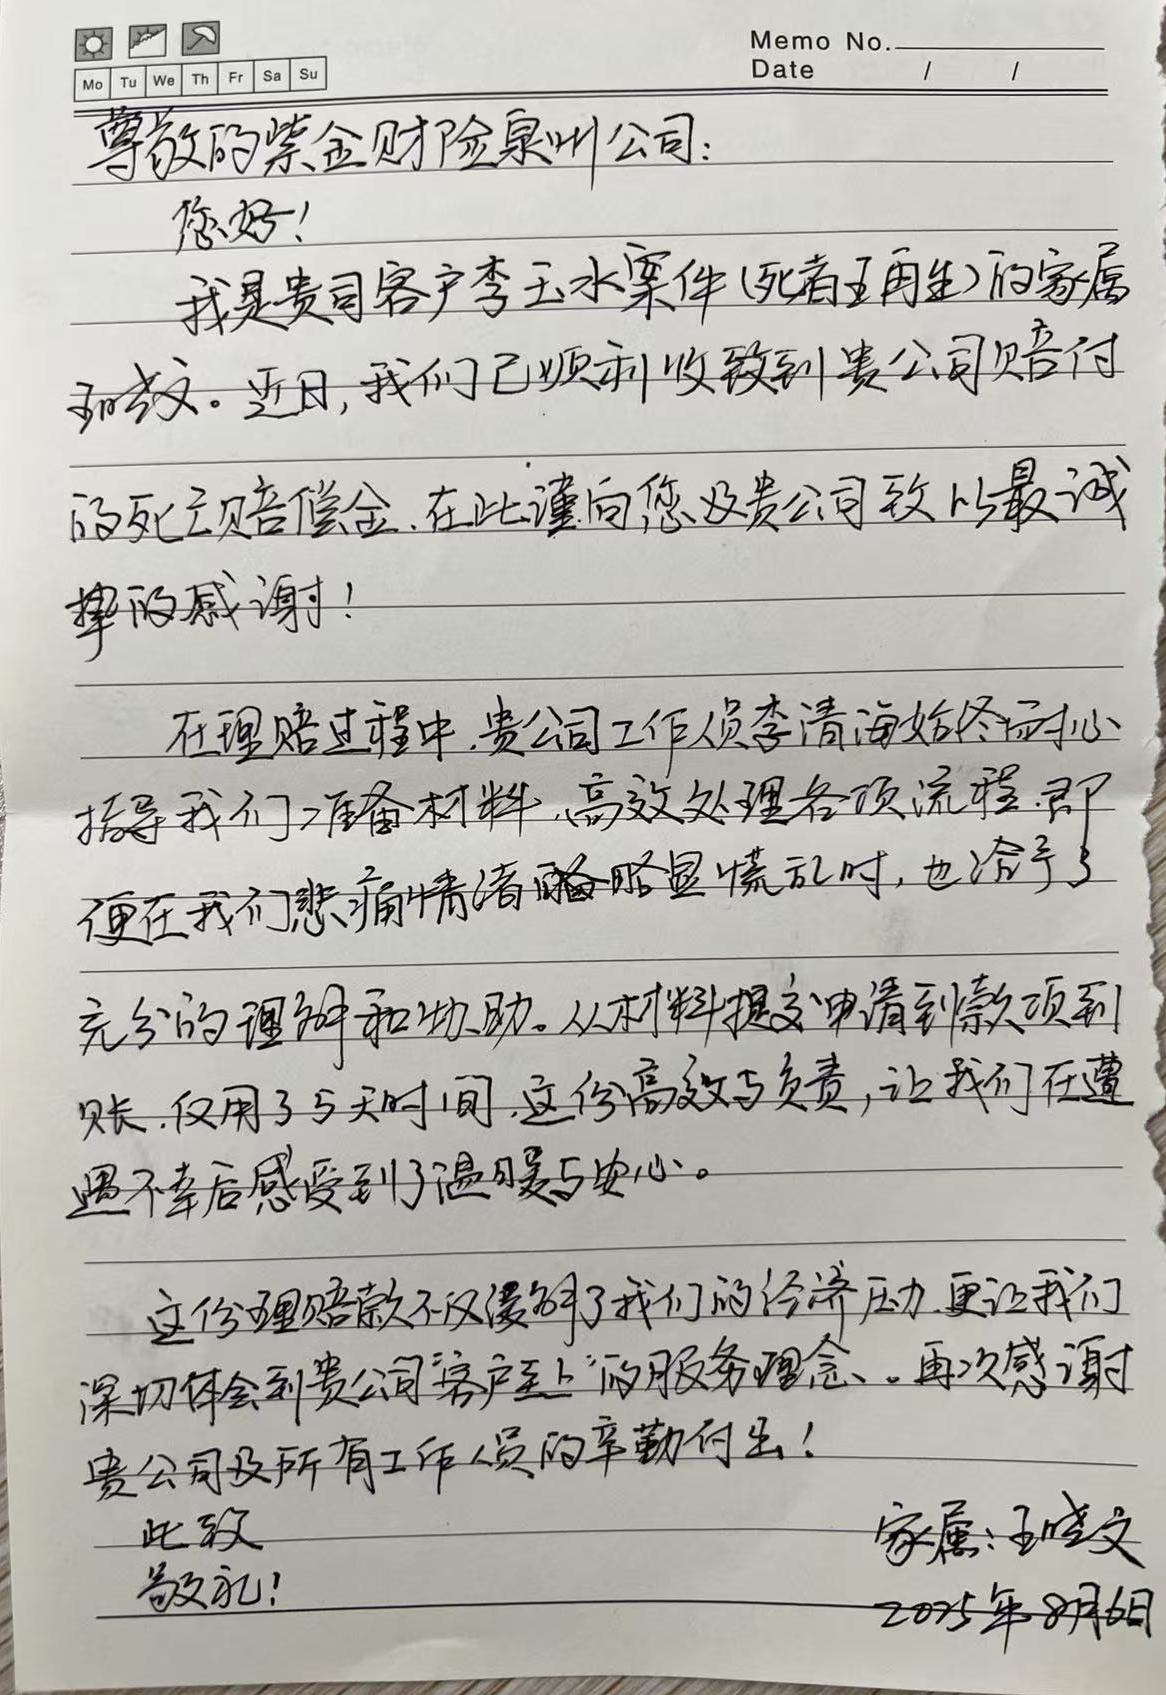 Memo No.
Mo Tu We Th Fr Sa Su
Date / /
尊敬的紫金财险泉州公司:
您好!
我是贵司客户李玉水案件(死者王再生)的家属
王晓文。近日,我们已顺利收致到贵公司赔付
的死亡赔偿金,在此谨向您及贵公司致以最诚
挚的感谢!
在理赔过程中,贵公司工作人员李清海始终耐心
指导我们准备材料,高效处理各项流程,即
便在我们悲痛情绪略显慌乱时,也给予了
充分的理解和协助。从材料提交申请到款项到
账,仅用了5天时间,这份高效与负责,让我们在遭
遇不幸后感受到了温暖与安心。
这份理赔款不仅缓解了我们的经济压力,更让我们
深切体会到贵公司“客户至上”的服务理念。再次感谢
贵公司及所有工作人员的辛勤付出!
此致
敬礼!
家属:王晓文
2025年8月6日